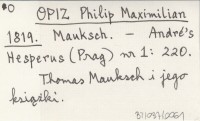 OPIZ Philip Maximilian
1819. Mauksch. – André's
Hesperus (Prag) nr 1: 220.
Thomas Mauksch i jego
książki.
37/037/0069